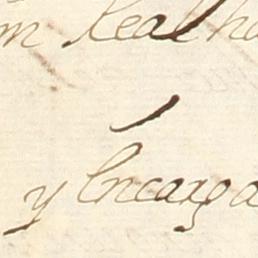 m Real ha
y Encarga